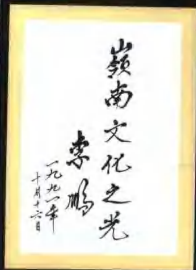 嶺南文化之光
李鵬
一九九一年
十月十六日